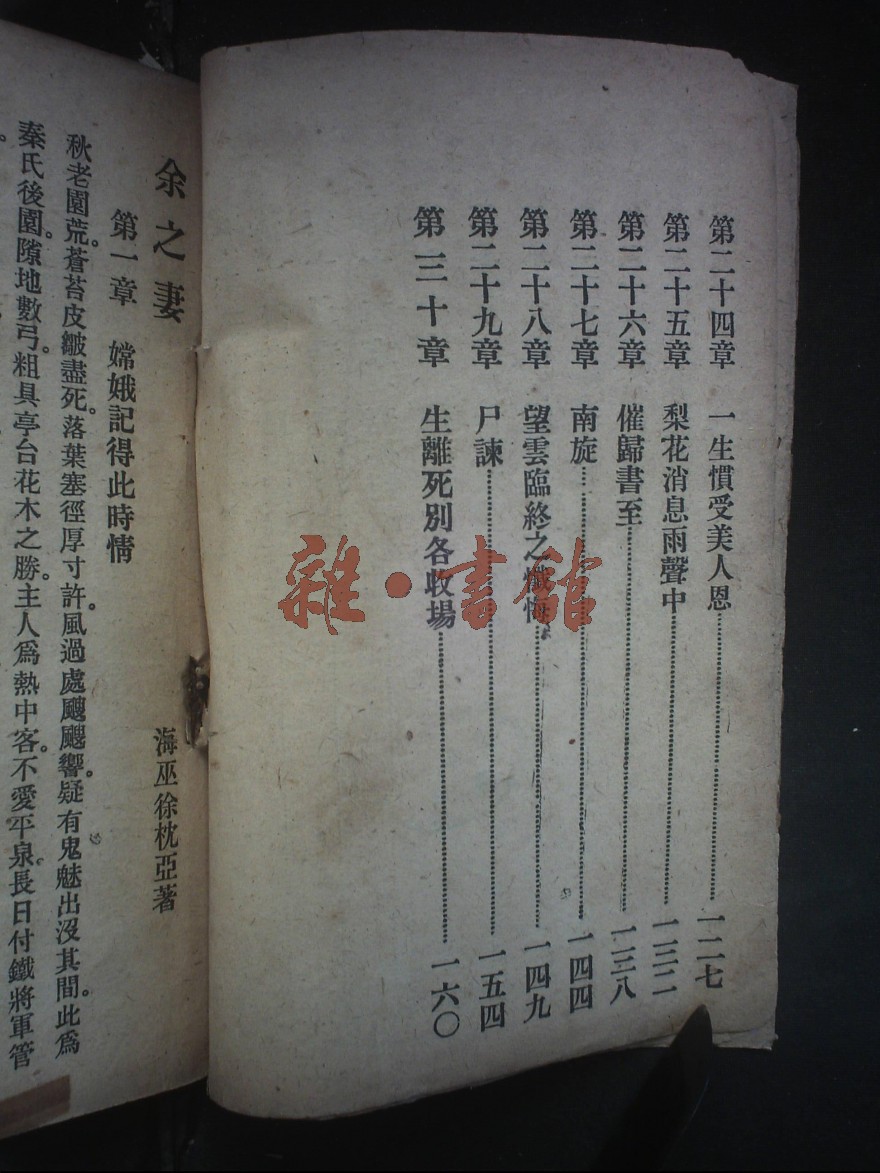 第二十四章 一生慣受美人恩……一二七
第二十五章 梨花消息雨聲中……一三二
第二十六章 催歸書至……一三八
第二十七章 南旋……一四四
第二十八章 望雲臨終之懺悔……一四九
第二十九章 尸諫……一五四
第三十章 生離死別各收場……一六〇
余之妻
海巫徐枕亞著
第一章 嫦娥記得此時情
秋老園荒。蒼苔皮皺盡死。落葉塞徑厚寸許。風過處颼颼響。疑有鬼魅出沒其間。此爲
秦氏後園。隙地數弓。粗具亭台花木之勝。主人爲熱中客。不愛平泉。長日付鐵將軍管
雜·書館